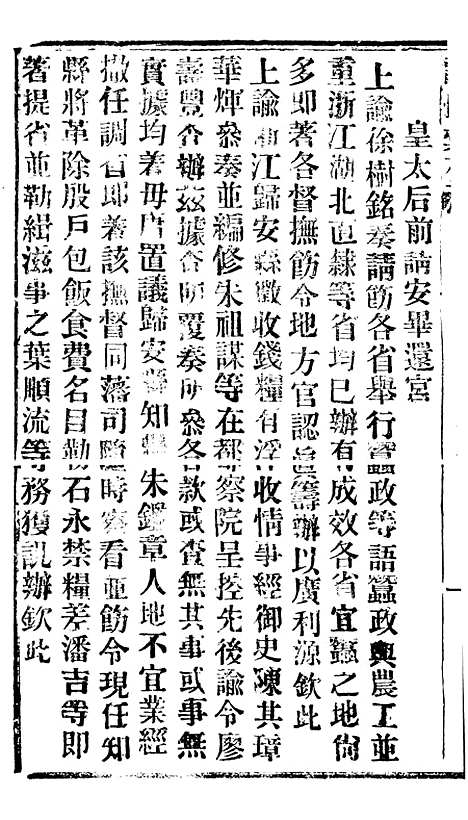 皇太后前請安畢還宮
上諭徐樹銘奏請飭各省舉行蠶政等語蠶政與農工並
重浙江湖北直隸等省均已辦有成效各省宜蠶之地尙
多卽著各督撫飭令地方官認眞籌辦以廣利源欽此
上諭浙江歸安縣徵收錢糧有浮收情事經御史陳其璋
華煇參奏並編修朱祖謀等在都察院呈控先後諭令廖
壽豐查辦茲據查明覆奏所參各款或查無其事或事無
實據均着毋庸置議歸安縣知縣朱鑑章人地不宜業經
撤任調省卽着該撫督同藩司隨時察看並飭令現任知
縣將革除殷戶包飯食費名目勒石永禁糧差潘吉等卽
着提省並勒緝滋事之葉順流等務獲訊辦欽此